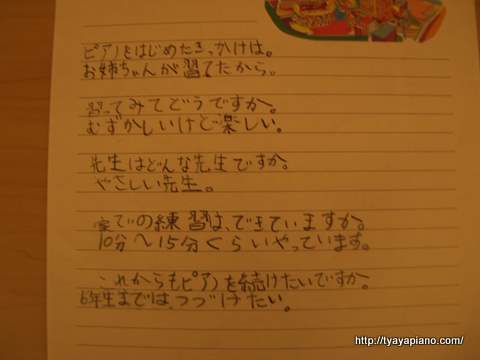 ピアノをはじめたきっかけは。
お姉ちゃんが習てたから。
習ってみてどうですか。
むずかしいけど楽しい。
先生はどんな先生ですか。
やさしい先生。
家での練習は、できていますか。
10分〜15分くらいやっています。
これからもピアノを続けたいですか。
6年生まではつづけたい。
http://tyayapiano.com/